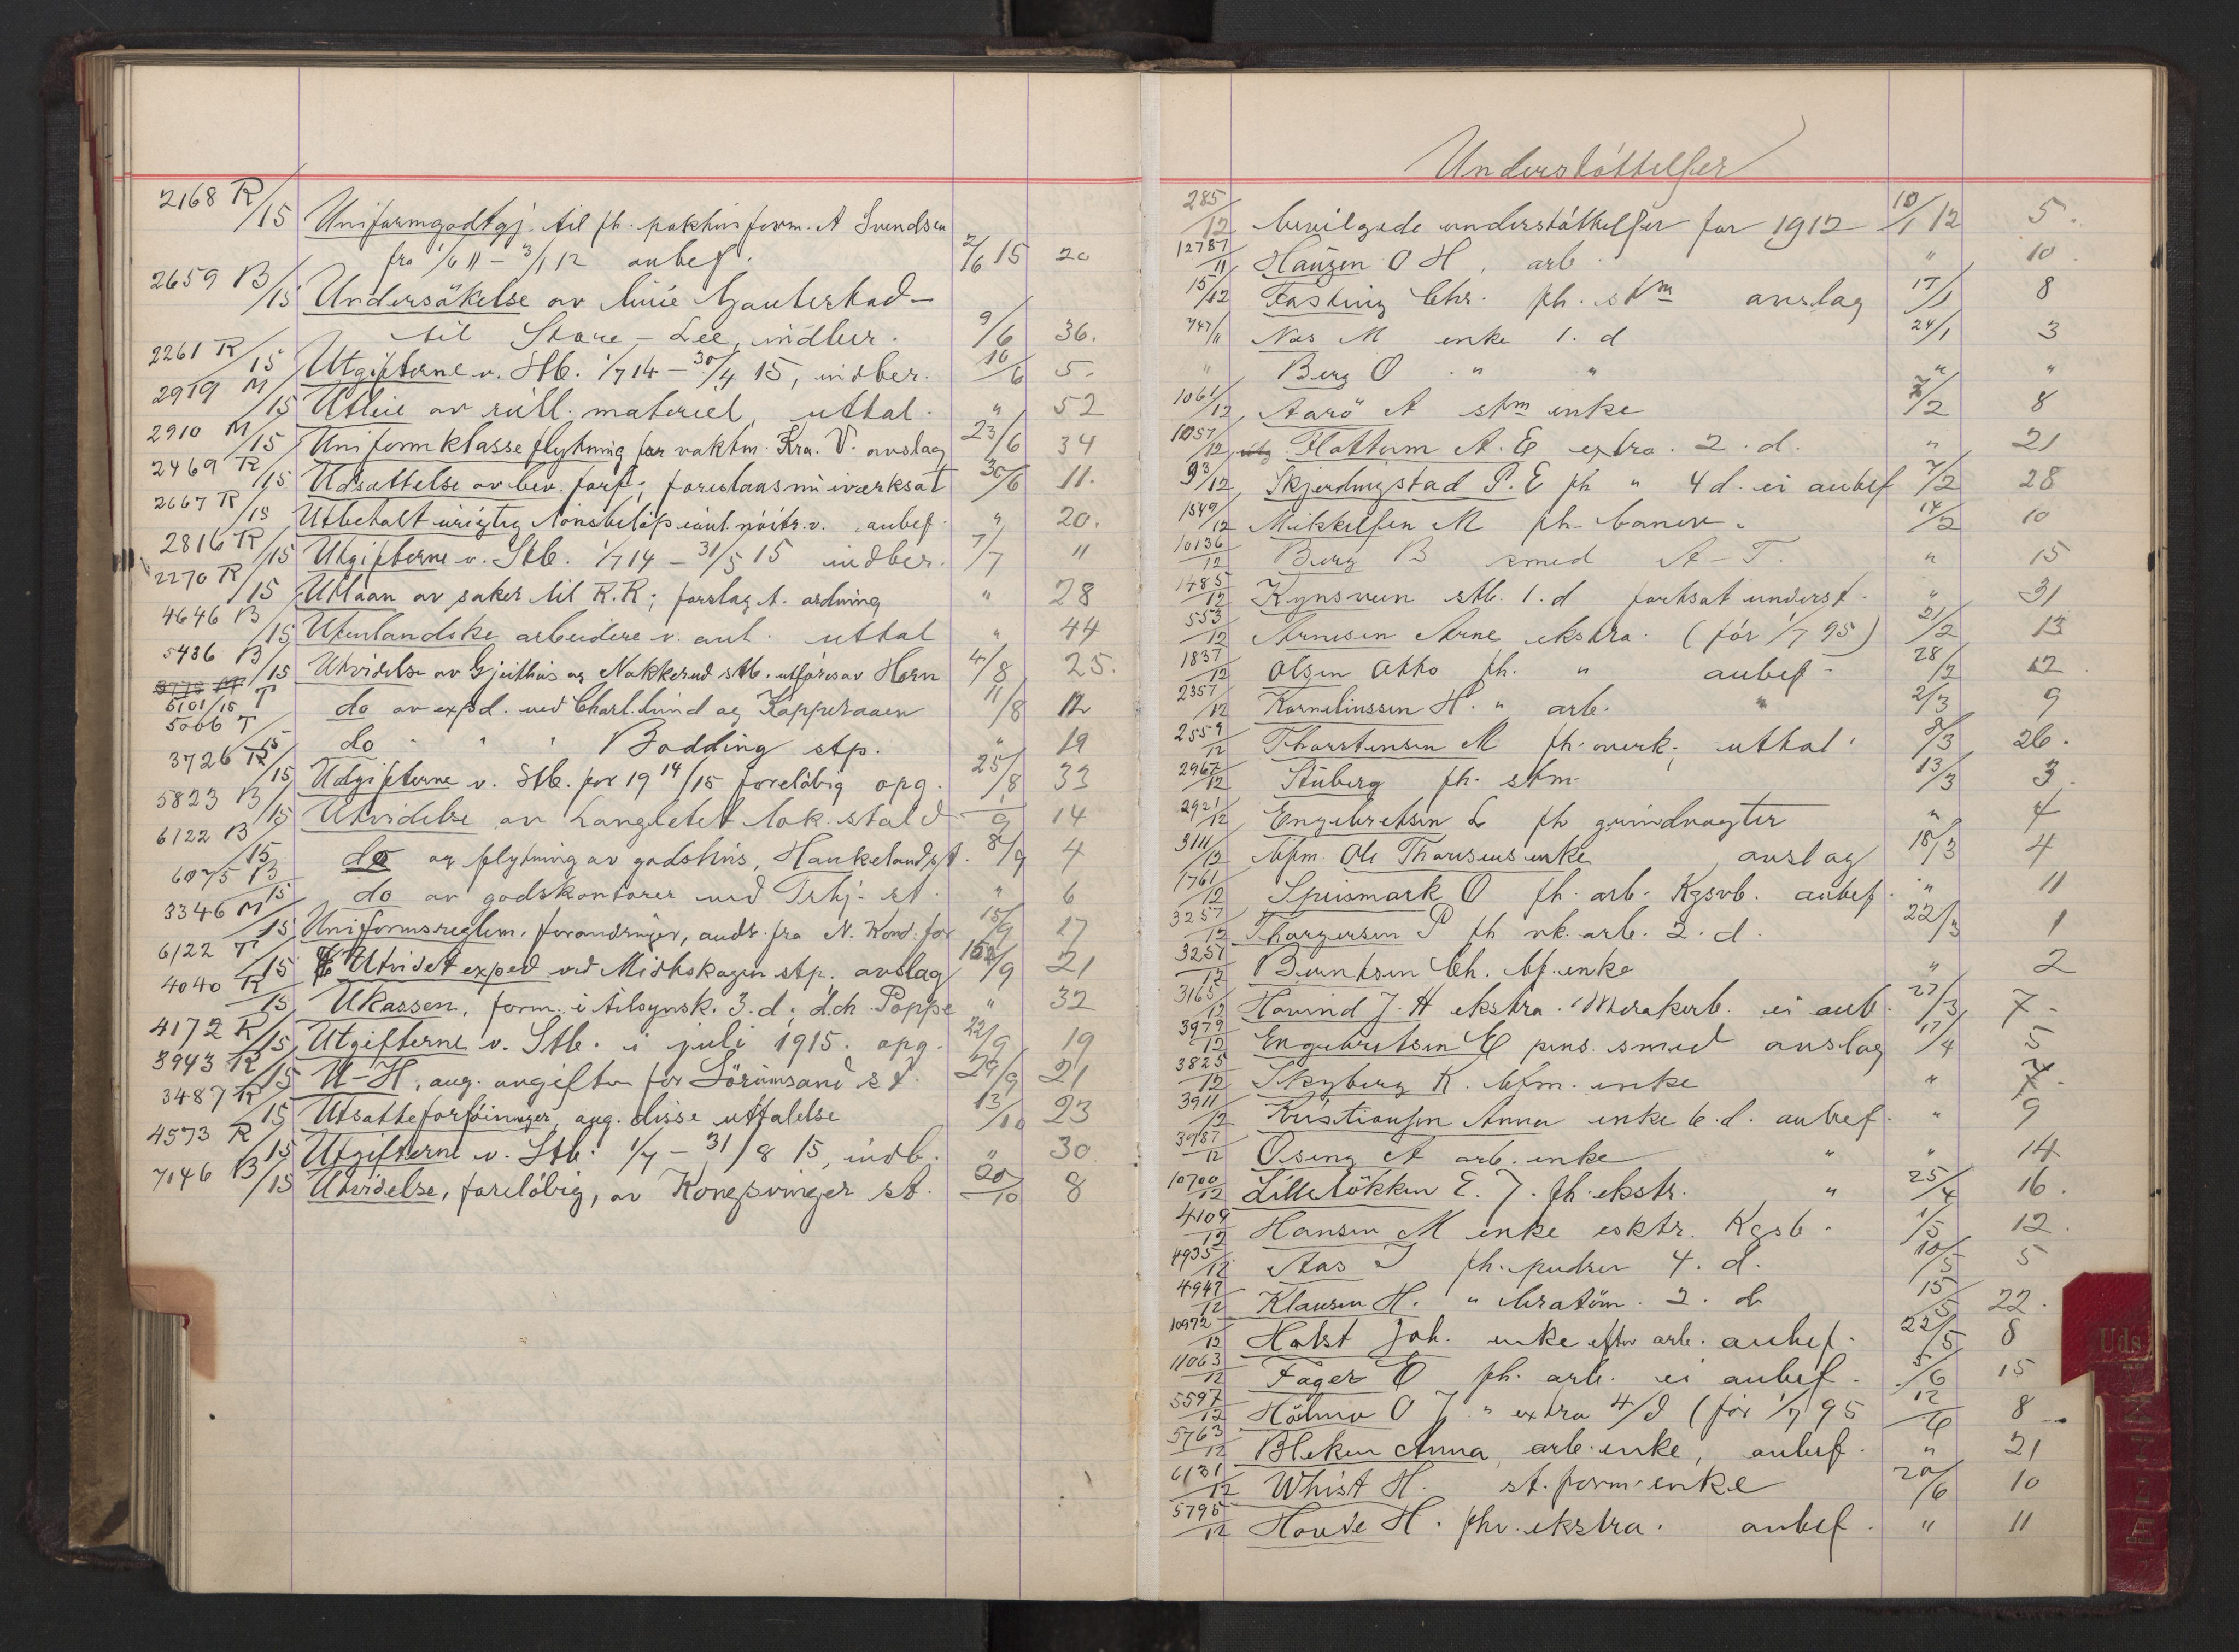 2168 R/15 Uniformgodtgj. til fh. pakhusform. A Svendsen
fra 1/6 11 – 3/1 12 anbef. 2/6 15 20
2659 B/15 Undersökelse av linie Gauterstad –
til Store – Lee, indber. 9/6 36.
2261 R/15 Utgifterne v. Stb. 1/7 14 – 30/4 15, indber. 10/6 5.
2919 M/15 Utleie av rull. materiel, uttal. " 52
2910 M/15 Uniformklasseflytning for vaktm. Kra. V. avslag 23/6 34
2469 R/15 Udsættelse av bev. forf; foreslaas nu iværksat 30/6 11.
2667 R/15 Utbetalt urigtig lönsbelöp av anbef. " 20.
2816 R/15 Utgifterne v. Stb. 1/7 14 – 31/5 15 indber. 7/7 11
2270 R/15 Utlaan av saker til R.R; forslag t. ordning " 28
4646 B/15 Utenlandske arbeidere v. anl. uttal " 44
5436 B/15 Utvidelse av Gjeithus og Nakkerud stb. utföres av Horn 4/8 25.
6101/15 T do av exped. ved Charl.lund og Kopperaaen 11/8 12
5006 T/15 do " " " Bodding stp. " 19
3726 R/15 Udgifterne v. Stb. for 1914/15 foreløbig opg. 25/8 33
5823 B/15 Utvidelse av Langletet lok. stald 1/9 14
6122 B/15 do og flytning av godshus, Haukeland st. 8/9 4
6075 B/15 do av godskontorer ved Trhj. st. " 6
3346 M/15 Uniformsreglem. forandringer, andr. fra N. Kond. for 15/9 17
6122 T/15 Utvidet exped ved Midtskogen stp. avslag 15/9 21
4040 R/15 Ukassen, form. i tilsynsk. 3. d; d.ch. Poppe " 32
4172 R/15 Utgifterne v. Stb. i juli 1915. opg. 22/9 19
3943 R/15 U–H, ang. avgifter for Sörumsand st. 29/9 21
3487 R/15 Utsatte forföininger, ang. disse uttalelse 13/10 23
4573 R/15 Utgifterne v. Stb. 1/7 – 31/8 15, indb. " 30
7146 B/15 Utvidelse, foreløbig, av Kongsvinger st. 20/10 8
Understöttelser
285/12 bevilgede understöttelser for 1912 10/1 12 5.
12787/11 Hansen O H, arb. " 10.
15/12 Fasting Chr. fh. stm avslag 17/1 8
747/11 Næs M enke 1. d 24/1 3
" Berg O " " " "
1061/12 Aarö A stm enke 7/2 8
1057/12 Flottum A. E extra. 2. d. " 21
93/12 Skjerdingstad P. E fh " 4 d. ei anbef 7/2 28
1549/12 Mikkelsen M fh. banev. 14/2 10
10136/12 Berg B smed A–T. " 15
1485/12 Kynsveen stb. 1. d fortsat underst. " 31
553/12 Arnesen Arne ekstra. (för 1/7 95) 21/2 13
1837/12 Olsen Otto fh. " anbef. 28/2 12
2357/12 Korneliussen H. " arb. " 2/3 9
2559/12 Thorstensen M fh. verk; uttal. 9/3 26.
2967/12 Stüberg fh. stm. 13/3 3.
2921/12 Engebretsen L fh grindvogter " 4
3111/12 bfm. Ole Thoresens enke, avslag 18/3 4
1761/12 Speismark O fh. arb. Kgsvb. anbef. " 11
3257/12 Thorgersen P fh vk. arb. 2. d. 22/3 1
3257/12 Berntsen Ch. bf. enke " 2
3165/12 Hovind J. A ekstra. Merakerb. ei anb. 27/3 7.
3979/12 Engebretsen E pens. smed avslag 17/4 5
3825/12 Skyberg K. bfm. enke " 7.
3911/12 Kristiansen Anna enke 6. d. anbef. " 9
3987/12 Öseng A arb. enke " " 14
10700/12 Lillelökken E. J. fh. ekstr. " 25/4 16.
4109/12 Hansen M enke esktr. Kgsb. 1/5 12.
4935/12 Aas J fh. pudser 4. d. 10/5 5
4947/12 Klausen H. " bratöm. 2. d 15/5 22.
10972/12 Holst Joh. enke efter arb. anbef. 22/5 8
11063/12 Fager E fh. arb. ei anbef. 5/6 15
5597/12 Holmo O J. " extra 4/d (för 1/7 95 12/6 8
5763/12 Bleken Anna, arb. enke, anbef. " 21
6131/12 Whist H. st. form. enke 20/6 10
5795/12 Hovde H. fhv. ekstra. anbef. " 11
Uds